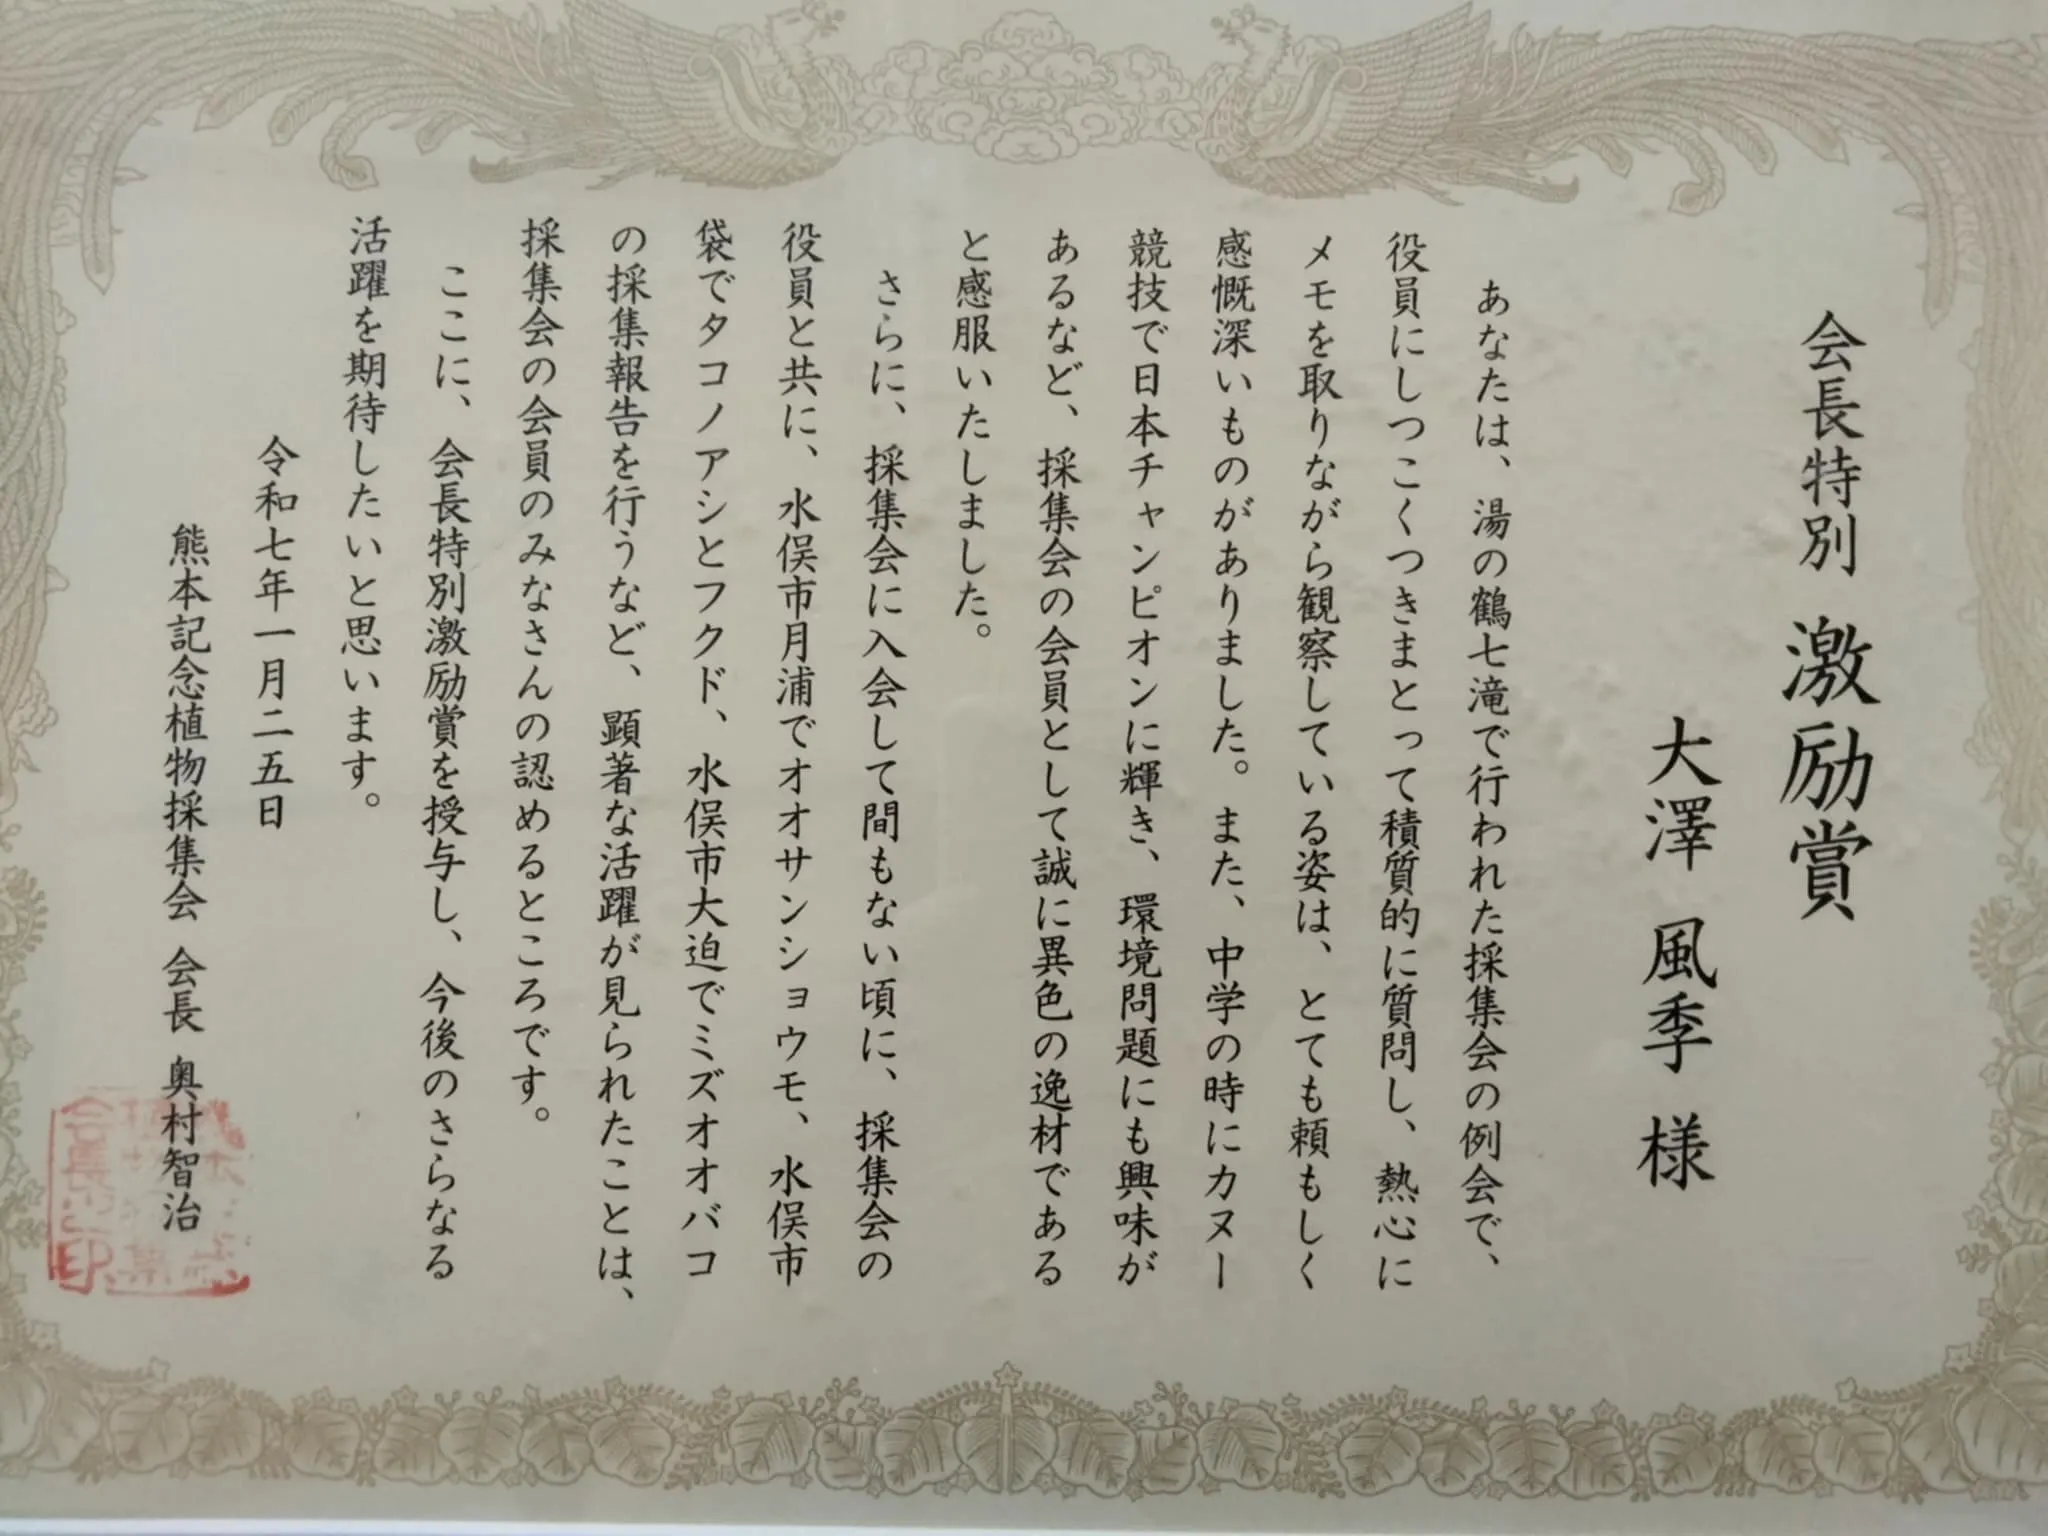 会長特別 激励賞
大澤 風季 様
あなたは、湯の鶴七滝で行われた採集会の例会で、
役員にしつこくつきまとって積質的に質問し、熱心に
メモを取りながら観察している姿は、とても頼もしく
感慨深いものがありました。また、中学の時にカヌー
競技で日本チャンピオンに輝き、環境問題にも興味が
あるなど、採集会の会員として誠に異色の逸材である
と感服いたしました。
さらに、採集会に入会して間もない頃に、採集会の
役員と共に、水俣市月浦でオオサンショウモ、水俣市
袋でタコノアシとフクド、水俣市大迫でミズオオバコ
の採集報告を行うなど、顕著な活躍が見られたことは、
採集会の会員のみなさんの認めるところです。
ここに、会長特別激励賞を授与し、今後のさらなる
活躍を期待したいと思います。
令和七年一月二五日
熊本記念植物採集会 会長 奥村智治
会長印